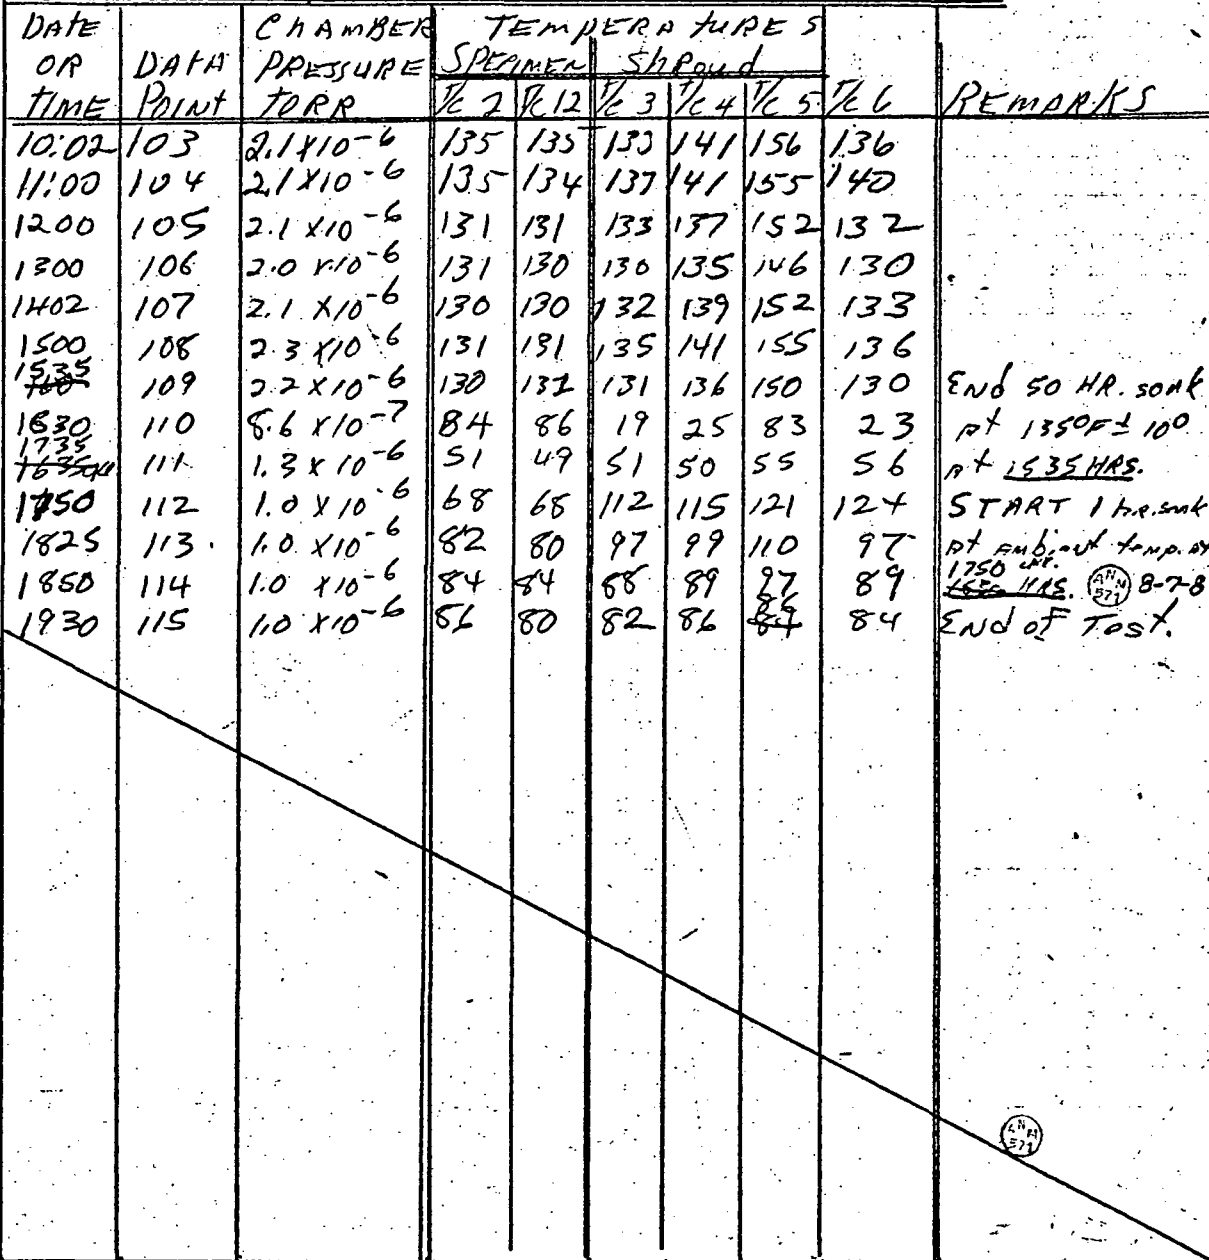 DATE CHAMBER TEMPERATURES
OR DATA PRESSURE SPECIMEN Shroud
TIME POINT TORR T/C 2 T/C 12 T/C 3 T/C 4 T/C 5 T/C 6 REMARKS
10:02 103 2.1 X10-6 135 135 133 141 156 136
11:00 104 2.1 X10-6 135 134 137 141 155 140
1200 105 2.1 X10-6 131 131 133 137 152 132
1300 106 2.0 X10-6 131 130 130 135 146 130
1402 107 2.1 X10-6 130 130 132 139 152 133
1500 108 2.3 X10-6 131 131 135 141 155 136
1535 109 2.2 X10-6 130 131 131 136 150 130 End 50 HR. soak
1630 110 8.6 X10-7 84 86 19 25 83 23 At 135°F ± 10°
1735 111 1.3 X 10-6 51 49 51 50 55 56 At 1535 HRS.
1750 112 1.0 X 10-6 68 68 112 115 121 124 START 1 hr. soak
1825 113 1.0 X10-6 82 80 97 99 110 97 At ambient temp. at
1850 114 1.0 X10-6 84 84 88 89 97 89 1750 HRS. ANM 571 8-7-8
1930 115 1.0 X10-6 86 80 82 86 84 End of Test.
ANM
571